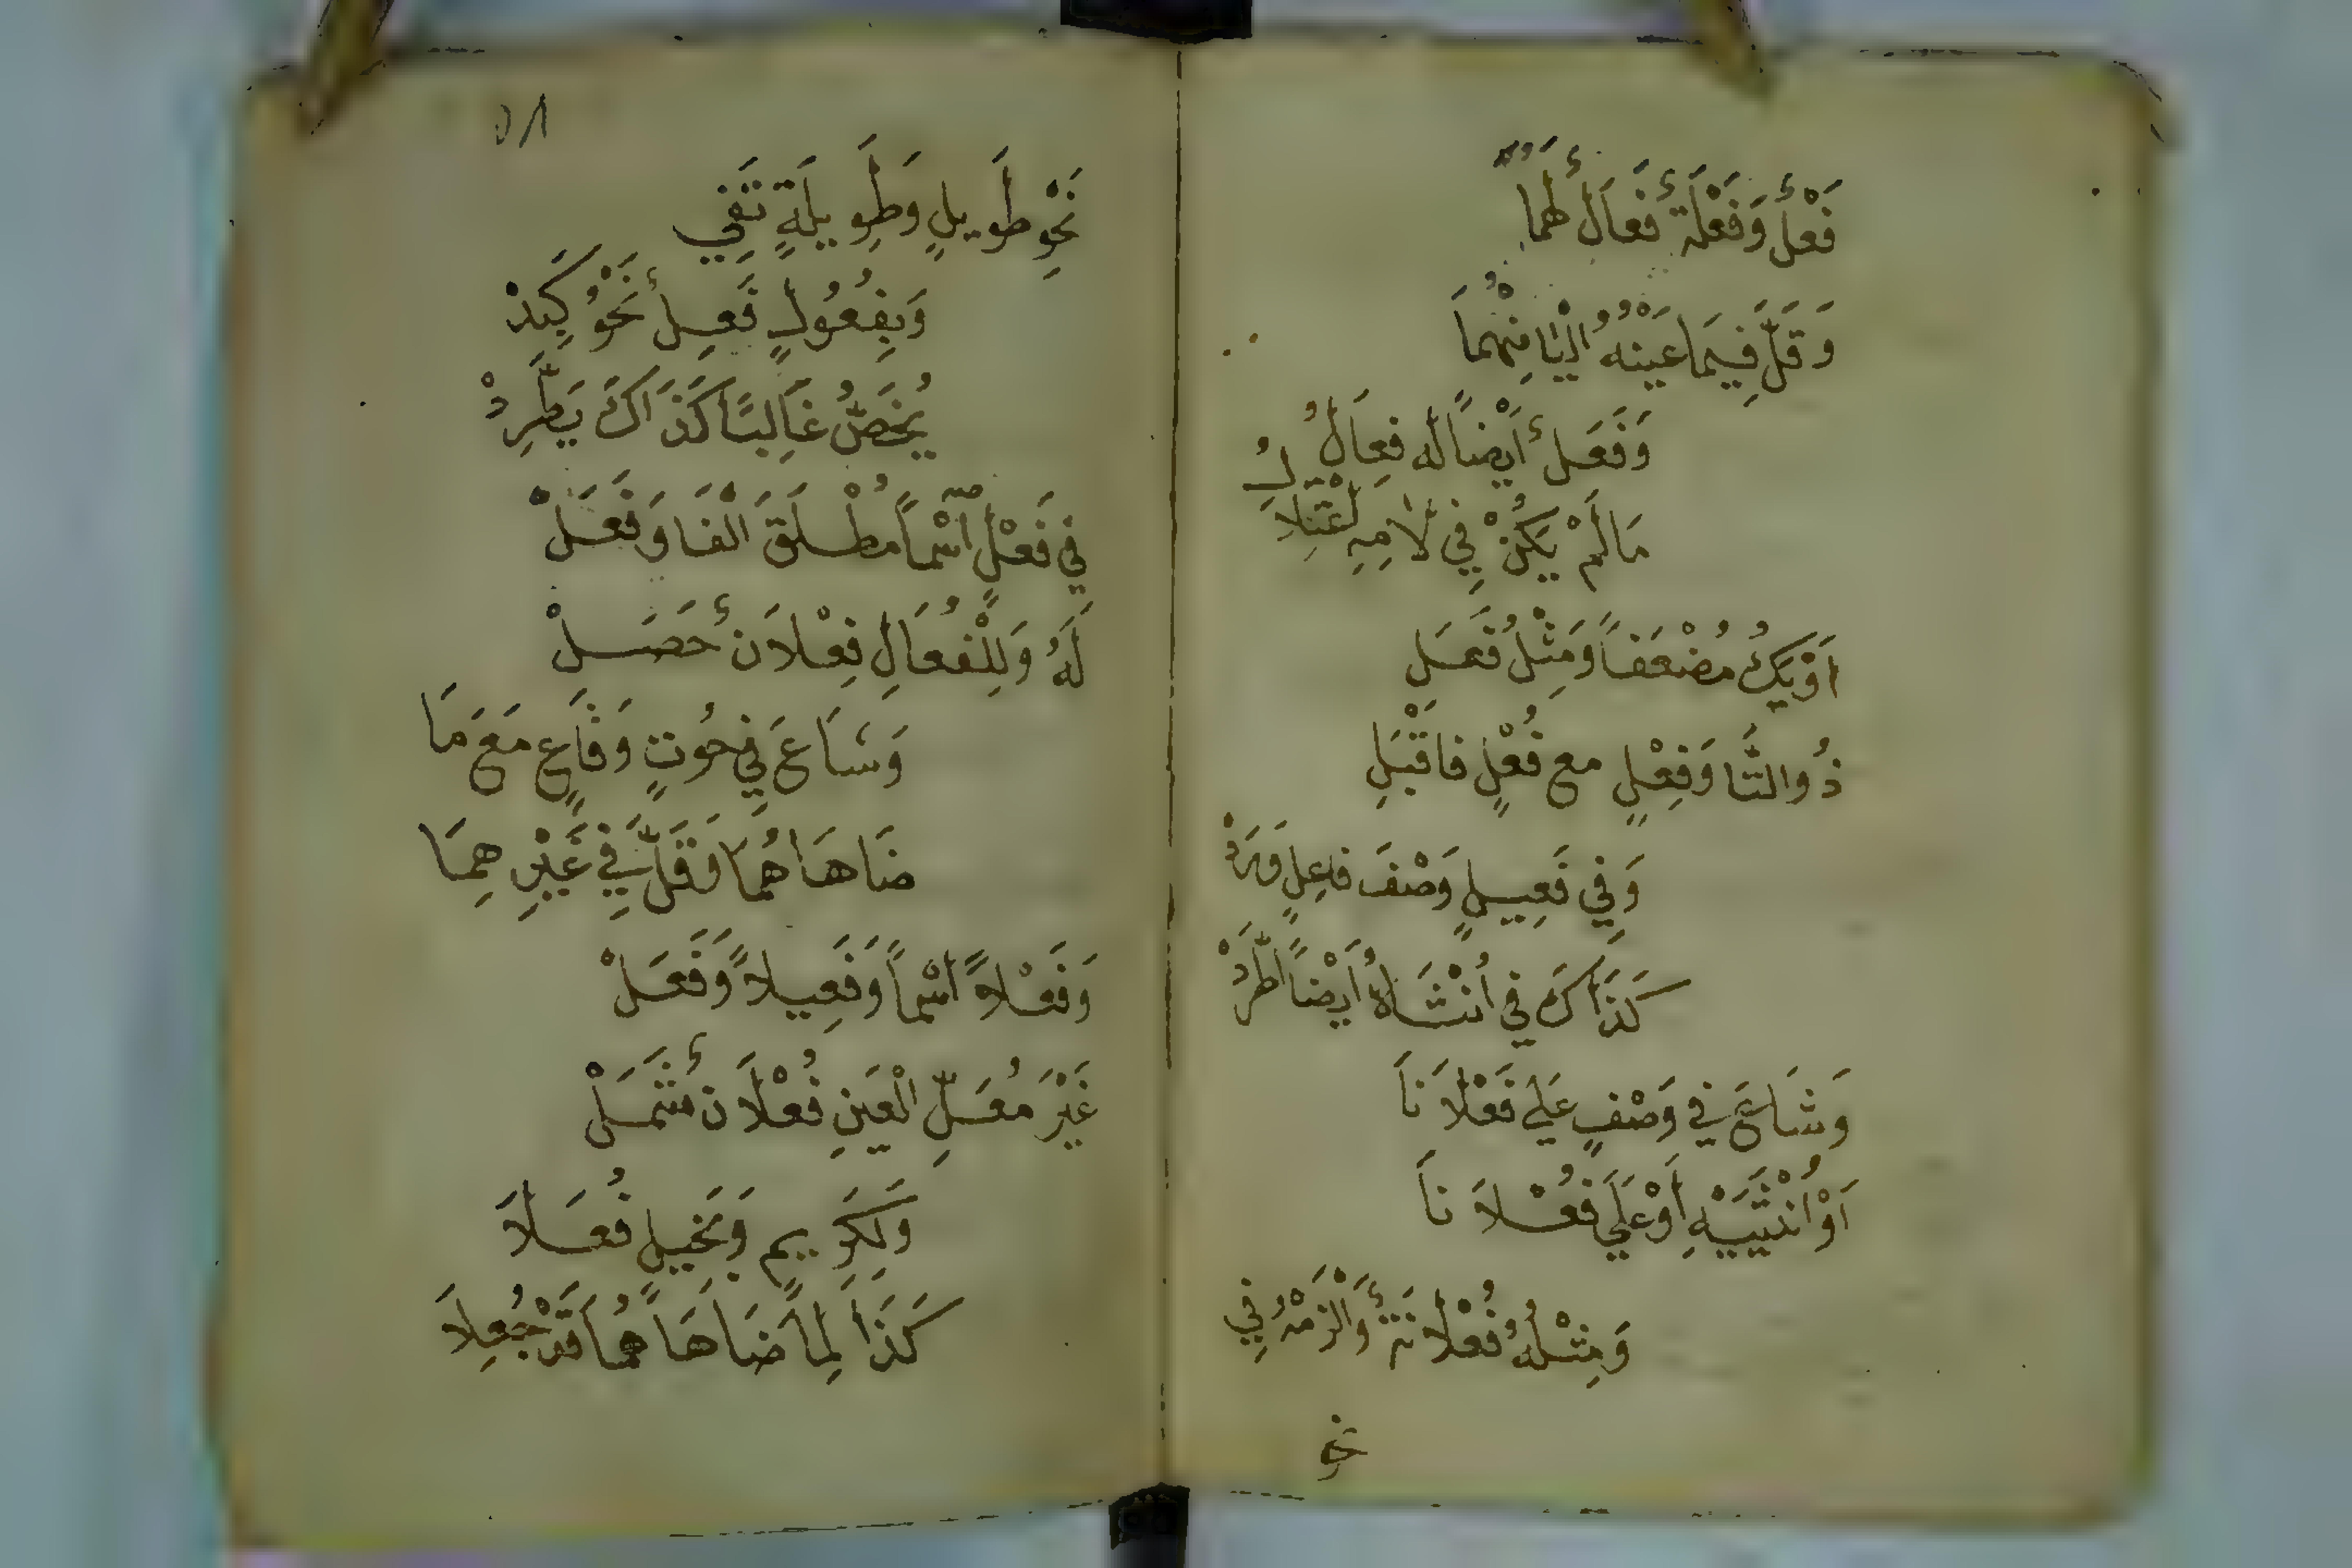 فَعْلٌ وَفَعْلَةٌ فِعَالٌ لَهُمَا
وَقَلَّ فِيمَا عَيْنُهُ الْيَا مِنْهُمَا
وَفَعَلٌ أَيْضاً لَهُ فِعَالُ
مَا لَمْ يَكُنْ فِي لَامِهِ اعْتِلَالُ
اَوْ يَكُ مُضْعَفاً وَمِثْلُ فَعَلِ
ذُو التَّا وَفِعْلٍ مع فُعْلٍ فَاقْبَلِ
وَفِي فَعِيلٍ وَصْفَ فَاعِلٍ وَرَدْ
كَذَاكَ فِي اُنْثَاهُ أَيْضاً اطَّرَدْ
وَشَاعَ فِي وَصْفٍ عَلَى فَعْلَانَا
اَوْ اُنْثَيَيْهِ أَوْ عَلَى فُعْلَانَا
وَمِثْلُهُ فُعْلَانَةٌ وَالْزَمْهُ فِي
نحو
٥٨
نَحْوِ طَوِيلٍ وَطَوِيلَةٍ تَفِي
وَبِفُعُولٍ فَعِلٌ نَحْوُ كَبِدْ
يُخَصُّ غَالِبًا كَذَاكَ يَطَّرِدْ
فِي فَعْلٍ اسْماً مُطْلَقَ الْفَا وَفَعَلْ
لَهُ وَلِلْفُعَالِ فِعْلَانٌ حَصَلْ
وَشَاعَ فِي حُوتٍ وَقَاعٍ مَعَ مَا
ضَاهَاهُمَا وَقَلَّ فِي غَيْرِهِمَا
وَفَعْلاً اسْماً وَفَعِيلاً وَفَعَلْ
غَيْرَ مُعَلِّ الْعَيْنِ فُعْلَانٌ شَمَلْ
وَلِكَرِيمٍ وَبَخِيلٍ فُعَلَا
كَذَا لِمَا ضَاهَاهُمَا قَدْ جُعِلَا